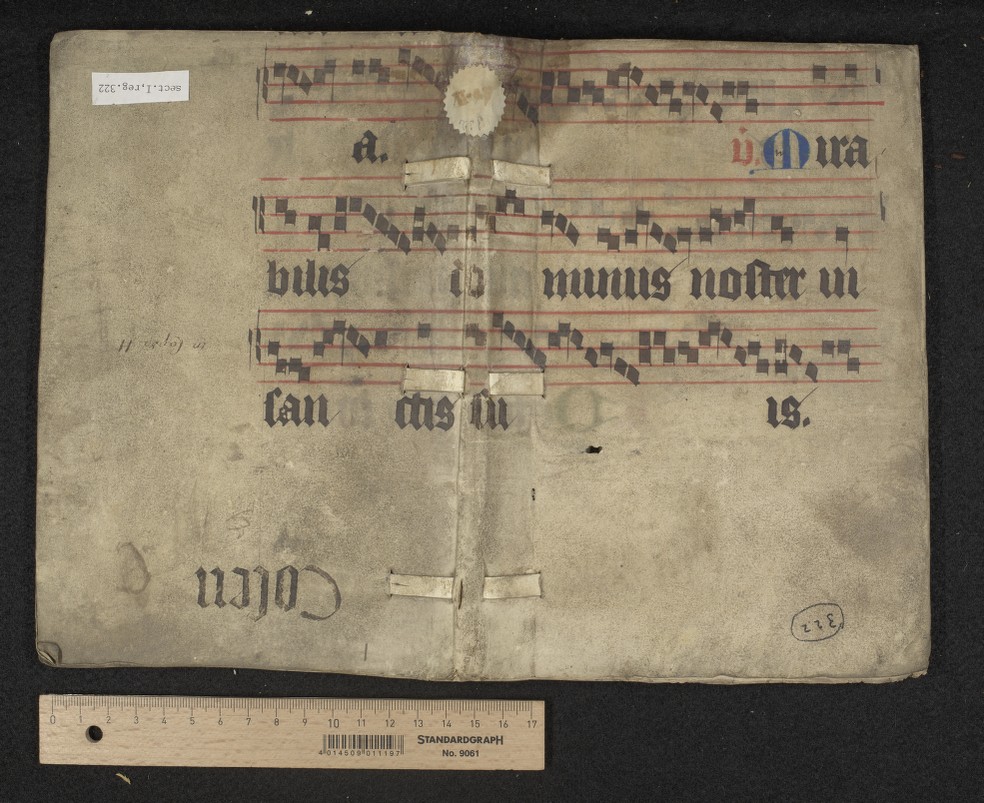 sect.I,reg.322
a. v. Mira
bilis do minus noster in
san ctis su is.
Colen
322
0 1 2 3 4 5 6 7 8 9 10 11 12 13 14 15 16 17
4 014509 011197
STANDARDGRAPH
No. 9061